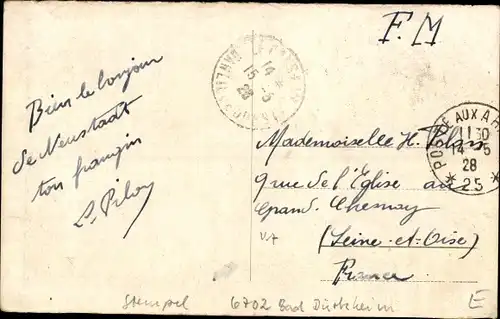 F. M
14
15 - 5
28
POSTE AUX A
11 30
14 - 5
28
* 25 *
Bien le bonjour
de Neustadt
ton frangin
Mademoiselle H.
9 rue de l'Eglise au
Grand. Chesnay
(Seine-et-Oise)
France
V.A
Stempel 6702 Bad Dürkheim E